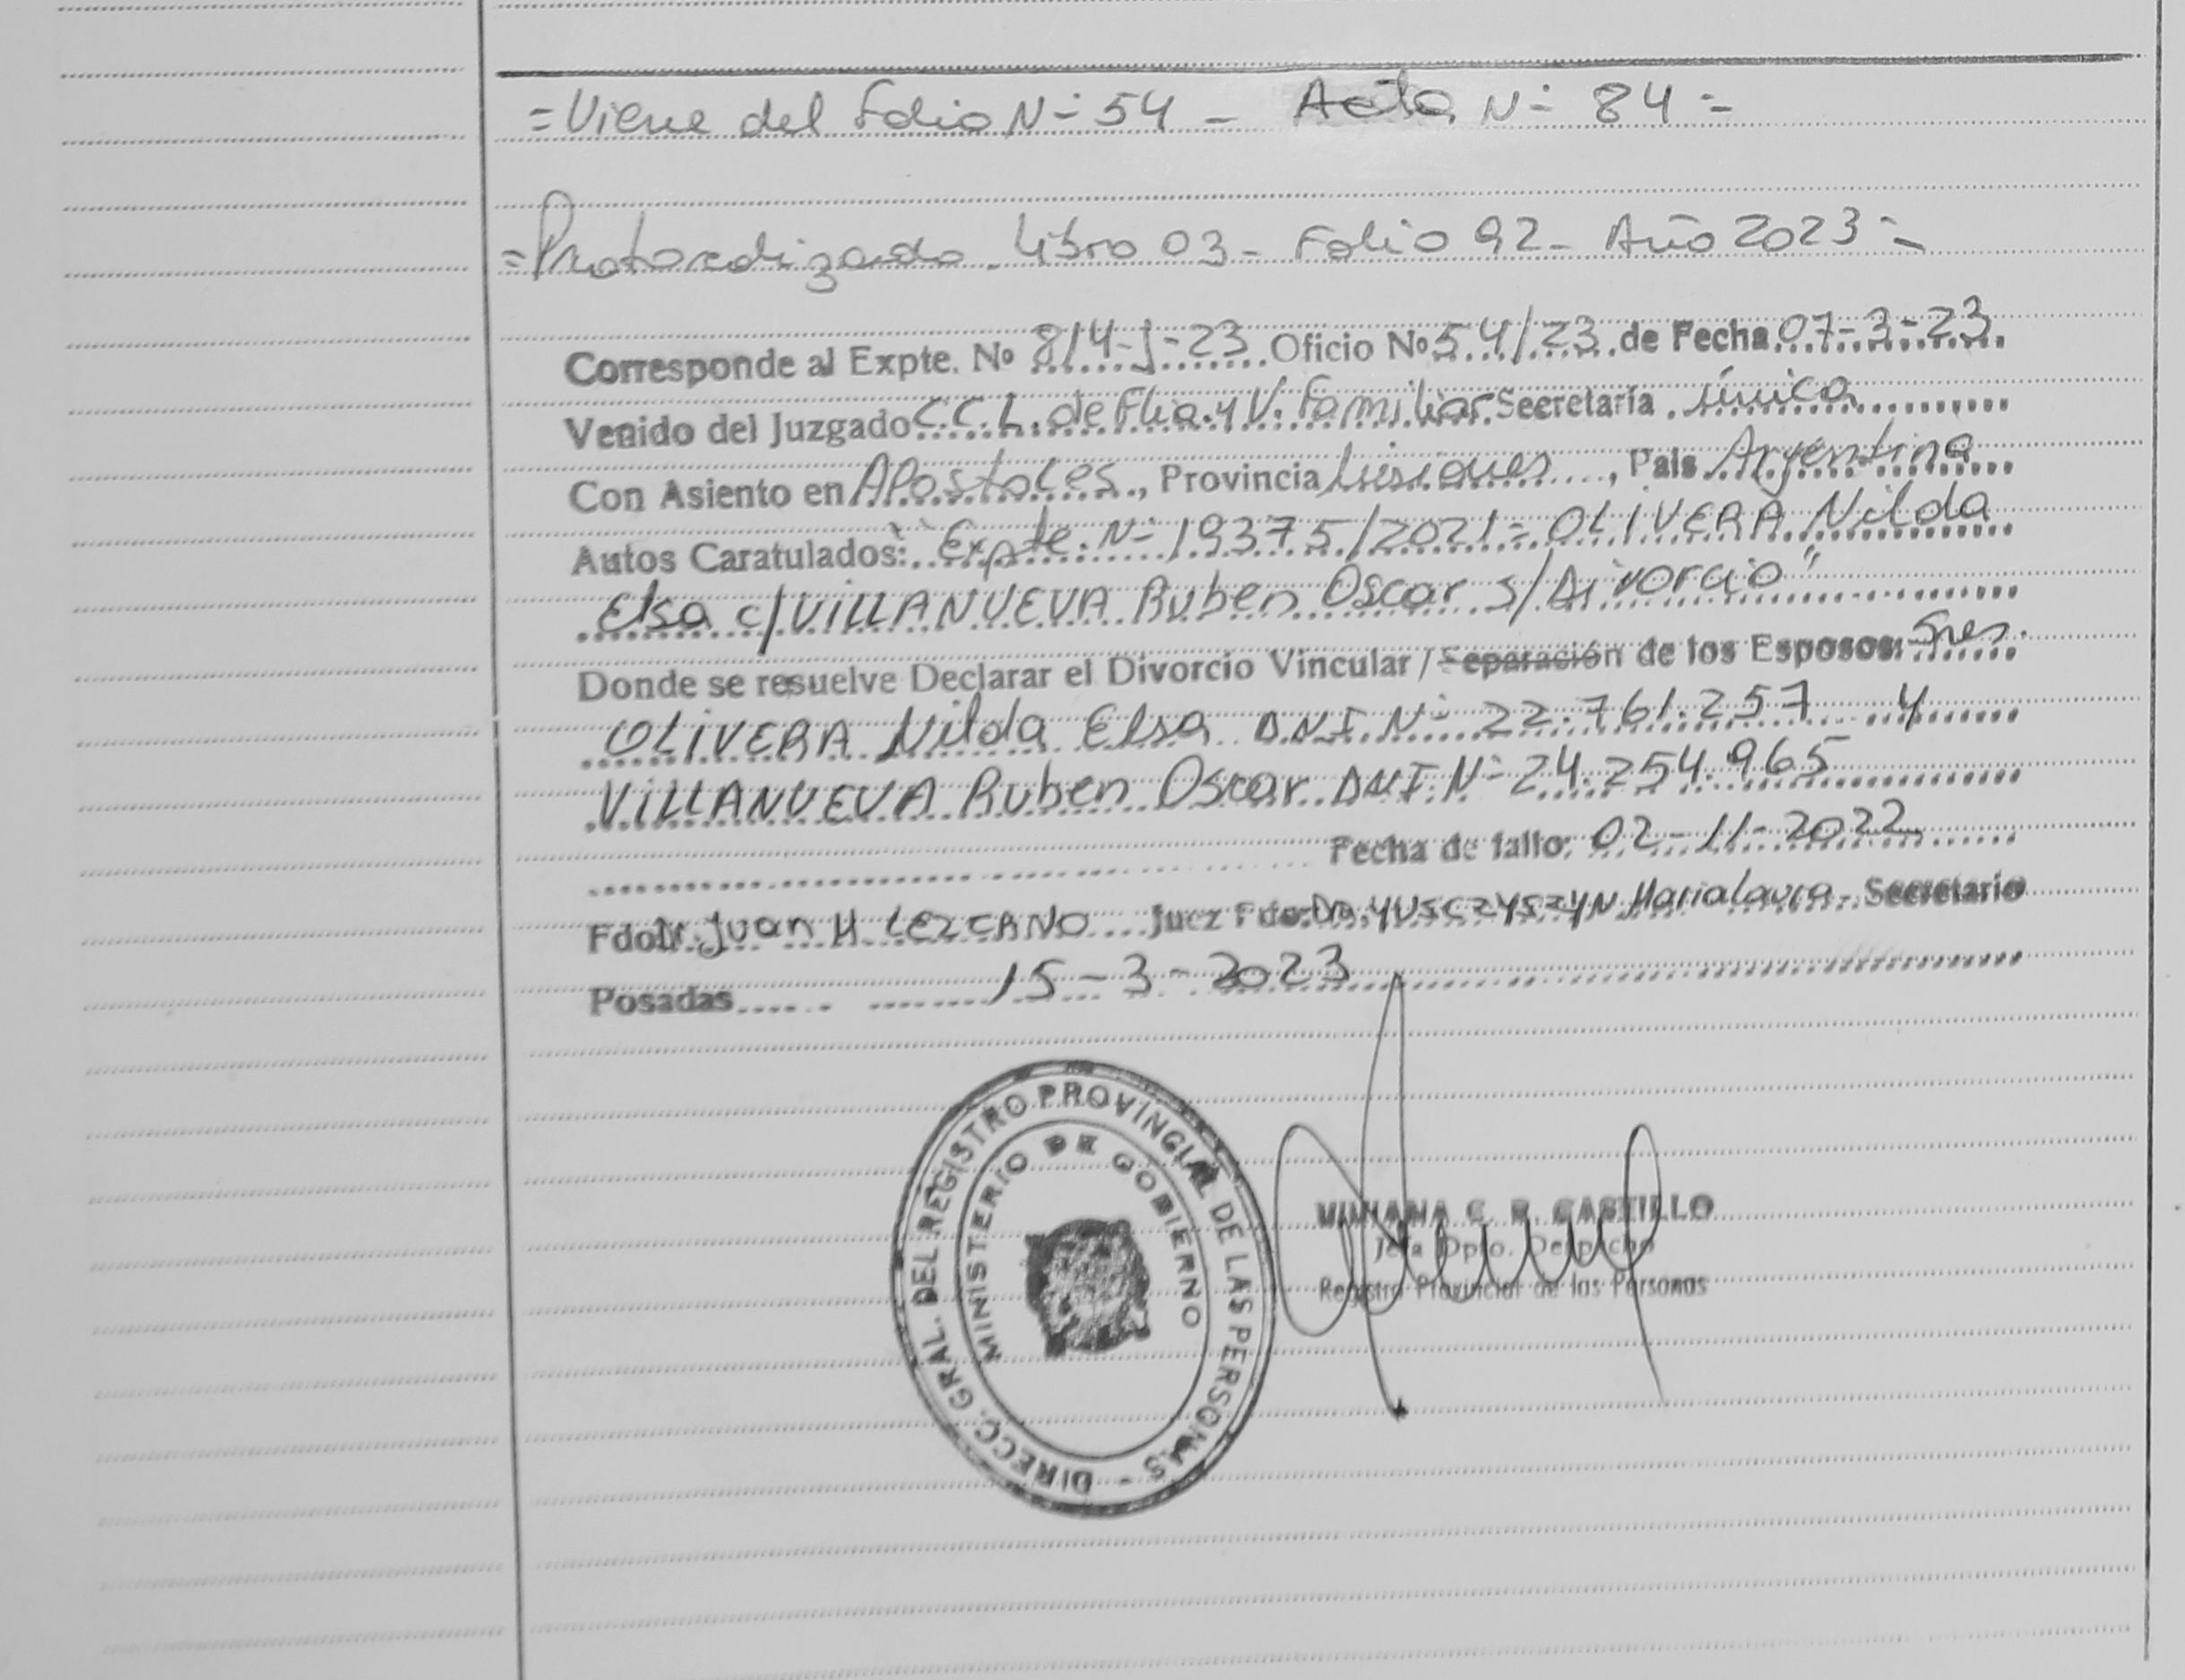 =Viene del Folio N- 54 - Acta N- 84 =
=Protocolizado - Libro 03 - Folio 92 - Año 2023 =
Corresponde al Expte. No 814-J-23 Oficio No 54/23 de Fecha 07-3-23.
Venido del Juzgado C.C.L. de Flia. y V. Familiar Secretaría única
Con Asiento en Apostoles, Provincia Misiones, País Argentina
Autos Caratulados: "Expte. N- 19375/2021 = OLIVERA Nilda
Elsa c/VILLANUEVA Ruben Oscar s/Divorcio"
Donde se resuelve Declarar el Divorcio Vincular / Separación de los Esposos: Sres.
OLIVERA Nilda Elsa D.N.I. N- 22.761.257 y
VILLANUEVA Ruben Oscar DNI. N- 24.254.965
Fecha de fallo: 02-11-2022
Fdo Dr. Juan H LEZCANO Juez Fdo: Dra. YUSCZYSZYN Maria Laura - Secretario
Posadas 15-3-2023
DIRECC. GRAL. DEL REGISTRO PROVINCIAL DE LAS PERSONAS -
MINISTERIO DE GOBIERNO
VIVIANA C. R. CASTILLO
Jefa Dpto. Despacho
Registro Provincial de las Personas